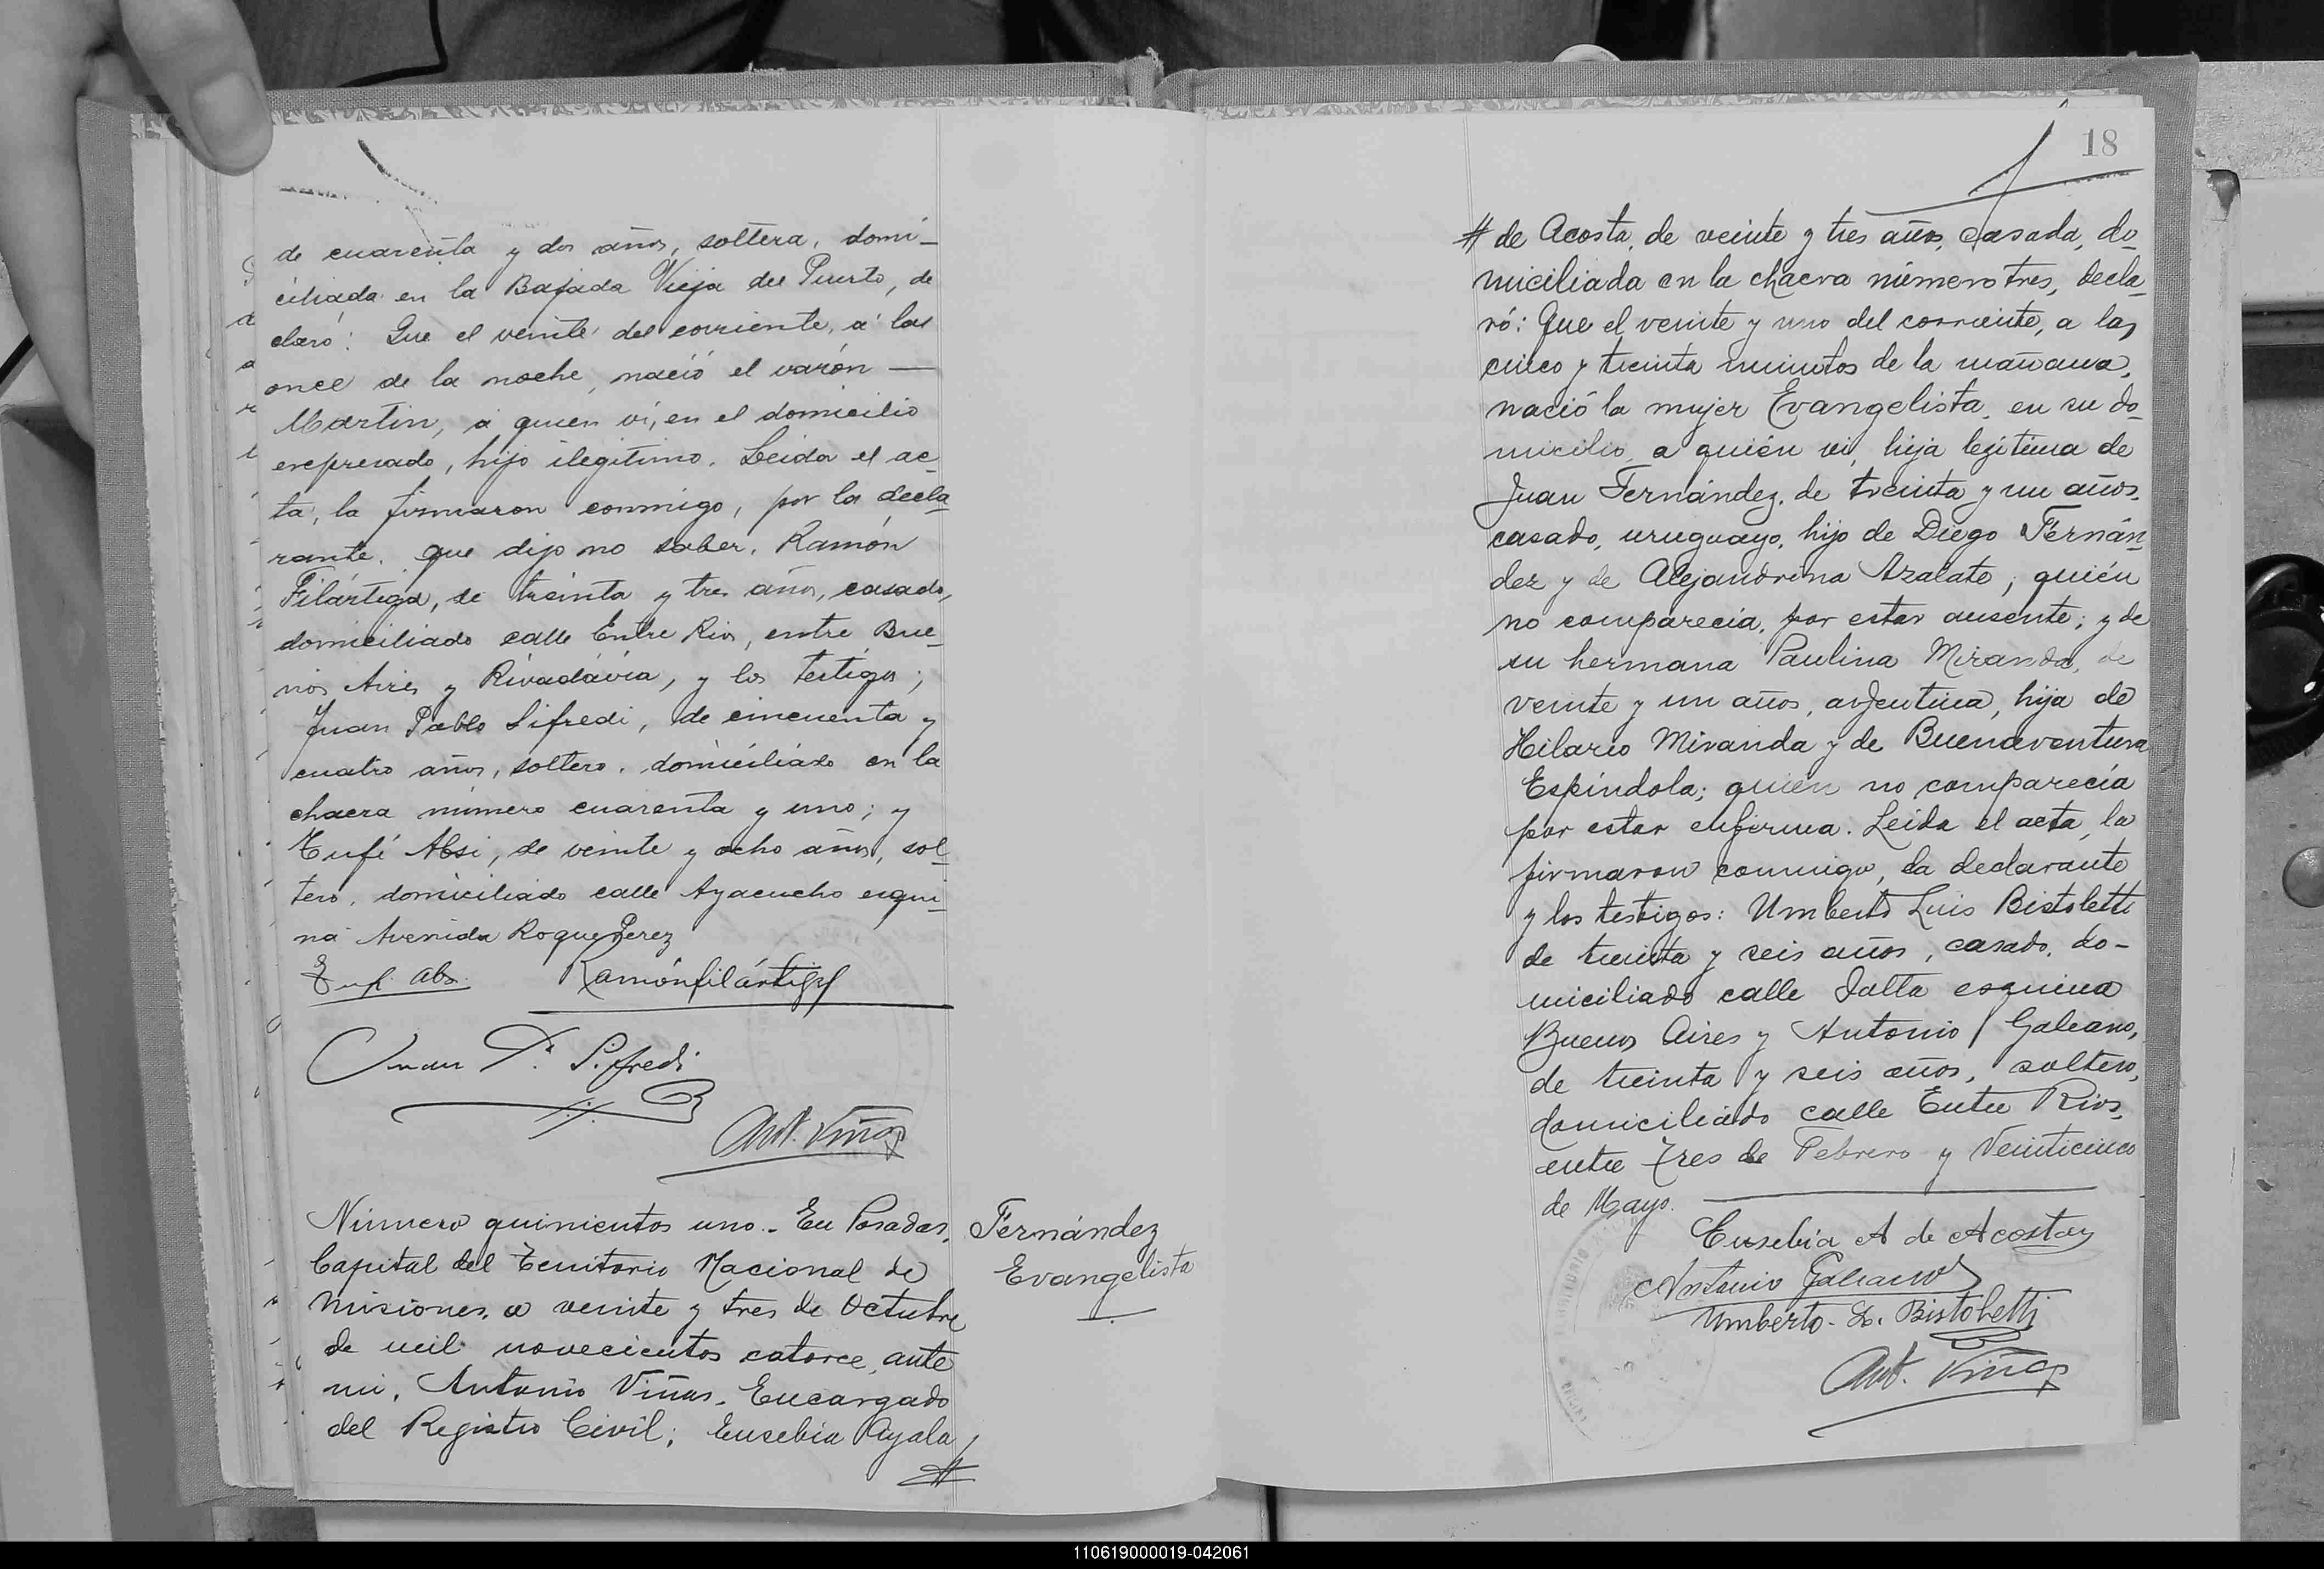 de cuarenta y dos años, soltera, domi-
ciliada en la Bajada Vieja del Puerto, de
claró: Que el veinte del corriente, a las
once de la noche, nació el varón —
Martin, a quien vi, en el domicilio
expresado, hijo ilegitimo. Leida el ac-
ta, la firmaron conmigo, por la decla-
rante, que dijo no saber, Ramón
Filártiga, de treinta y tres años, casado,
domiciliado calle Entre Rios, entre Bue-
nos Aires y Rivadavia, y los testigos;
Juan Pablo Sifredi, de cincuenta y
cuatro años, soltero, domiciliado en la
chacra número cuarenta y uno; y
Tufi Absi, de veinte y ocho años, sol-
tero, domiciliado calle Ayacucho esqui-
na Avenida Roque Perez
Tufi Abs. Ramón filártiga
Juan P. Sifredi
Ant. Viñas
Número quinientos uno.- En Posadas,
Capital del Territorio Nacional de
Misiones, a veinte y tres de Octubre
de mil novecientos catorce, ante
mi, Antonio Viñas, Encargado
del Registro Civil; Eusebia Ayala
#
Fernández
Evangelista
18
# de Acosta, de veinte y tres años, casada, do-
miciliada en la chacra número tres, decla-
ró: Que el veinte y uno del corriente, a las
cinco y treinta minutos de la mañana,
nació la mujer Evangelista, en su do-
micilio, a quién vi, hija legitima de
Juan Fernández, de treinta y un años,
casado, uruguayo, hijo de Diego Fernán-
dez y de Alejandrina Azalate; quién
no comparecia, por estar ausente; y de
su hermana Paulina Miranda, de
veinte y un años, arjentina, hija de
Hilario Miranda y de Buenaventura
Espíndola; quién no comparecía
por estar enferma. Leida el acta, la
firmaron conmigo, la declarante
y los testigos: Umberto Luis Bistoletti
de treinta y seis años, casado, do-
miciliado calle Salta esquina
Buenos Aires y Antonio Galeano,
de treinta y seis años, soltero,
domiciliado calle Entre Rios,
entre Tres de Febrero y Veinticinco
de Mayo.
Eusebia A de Acosta
Antonio Galeano
Umberto L. Bistoletti
Ant. Viñas
110619000019-042061